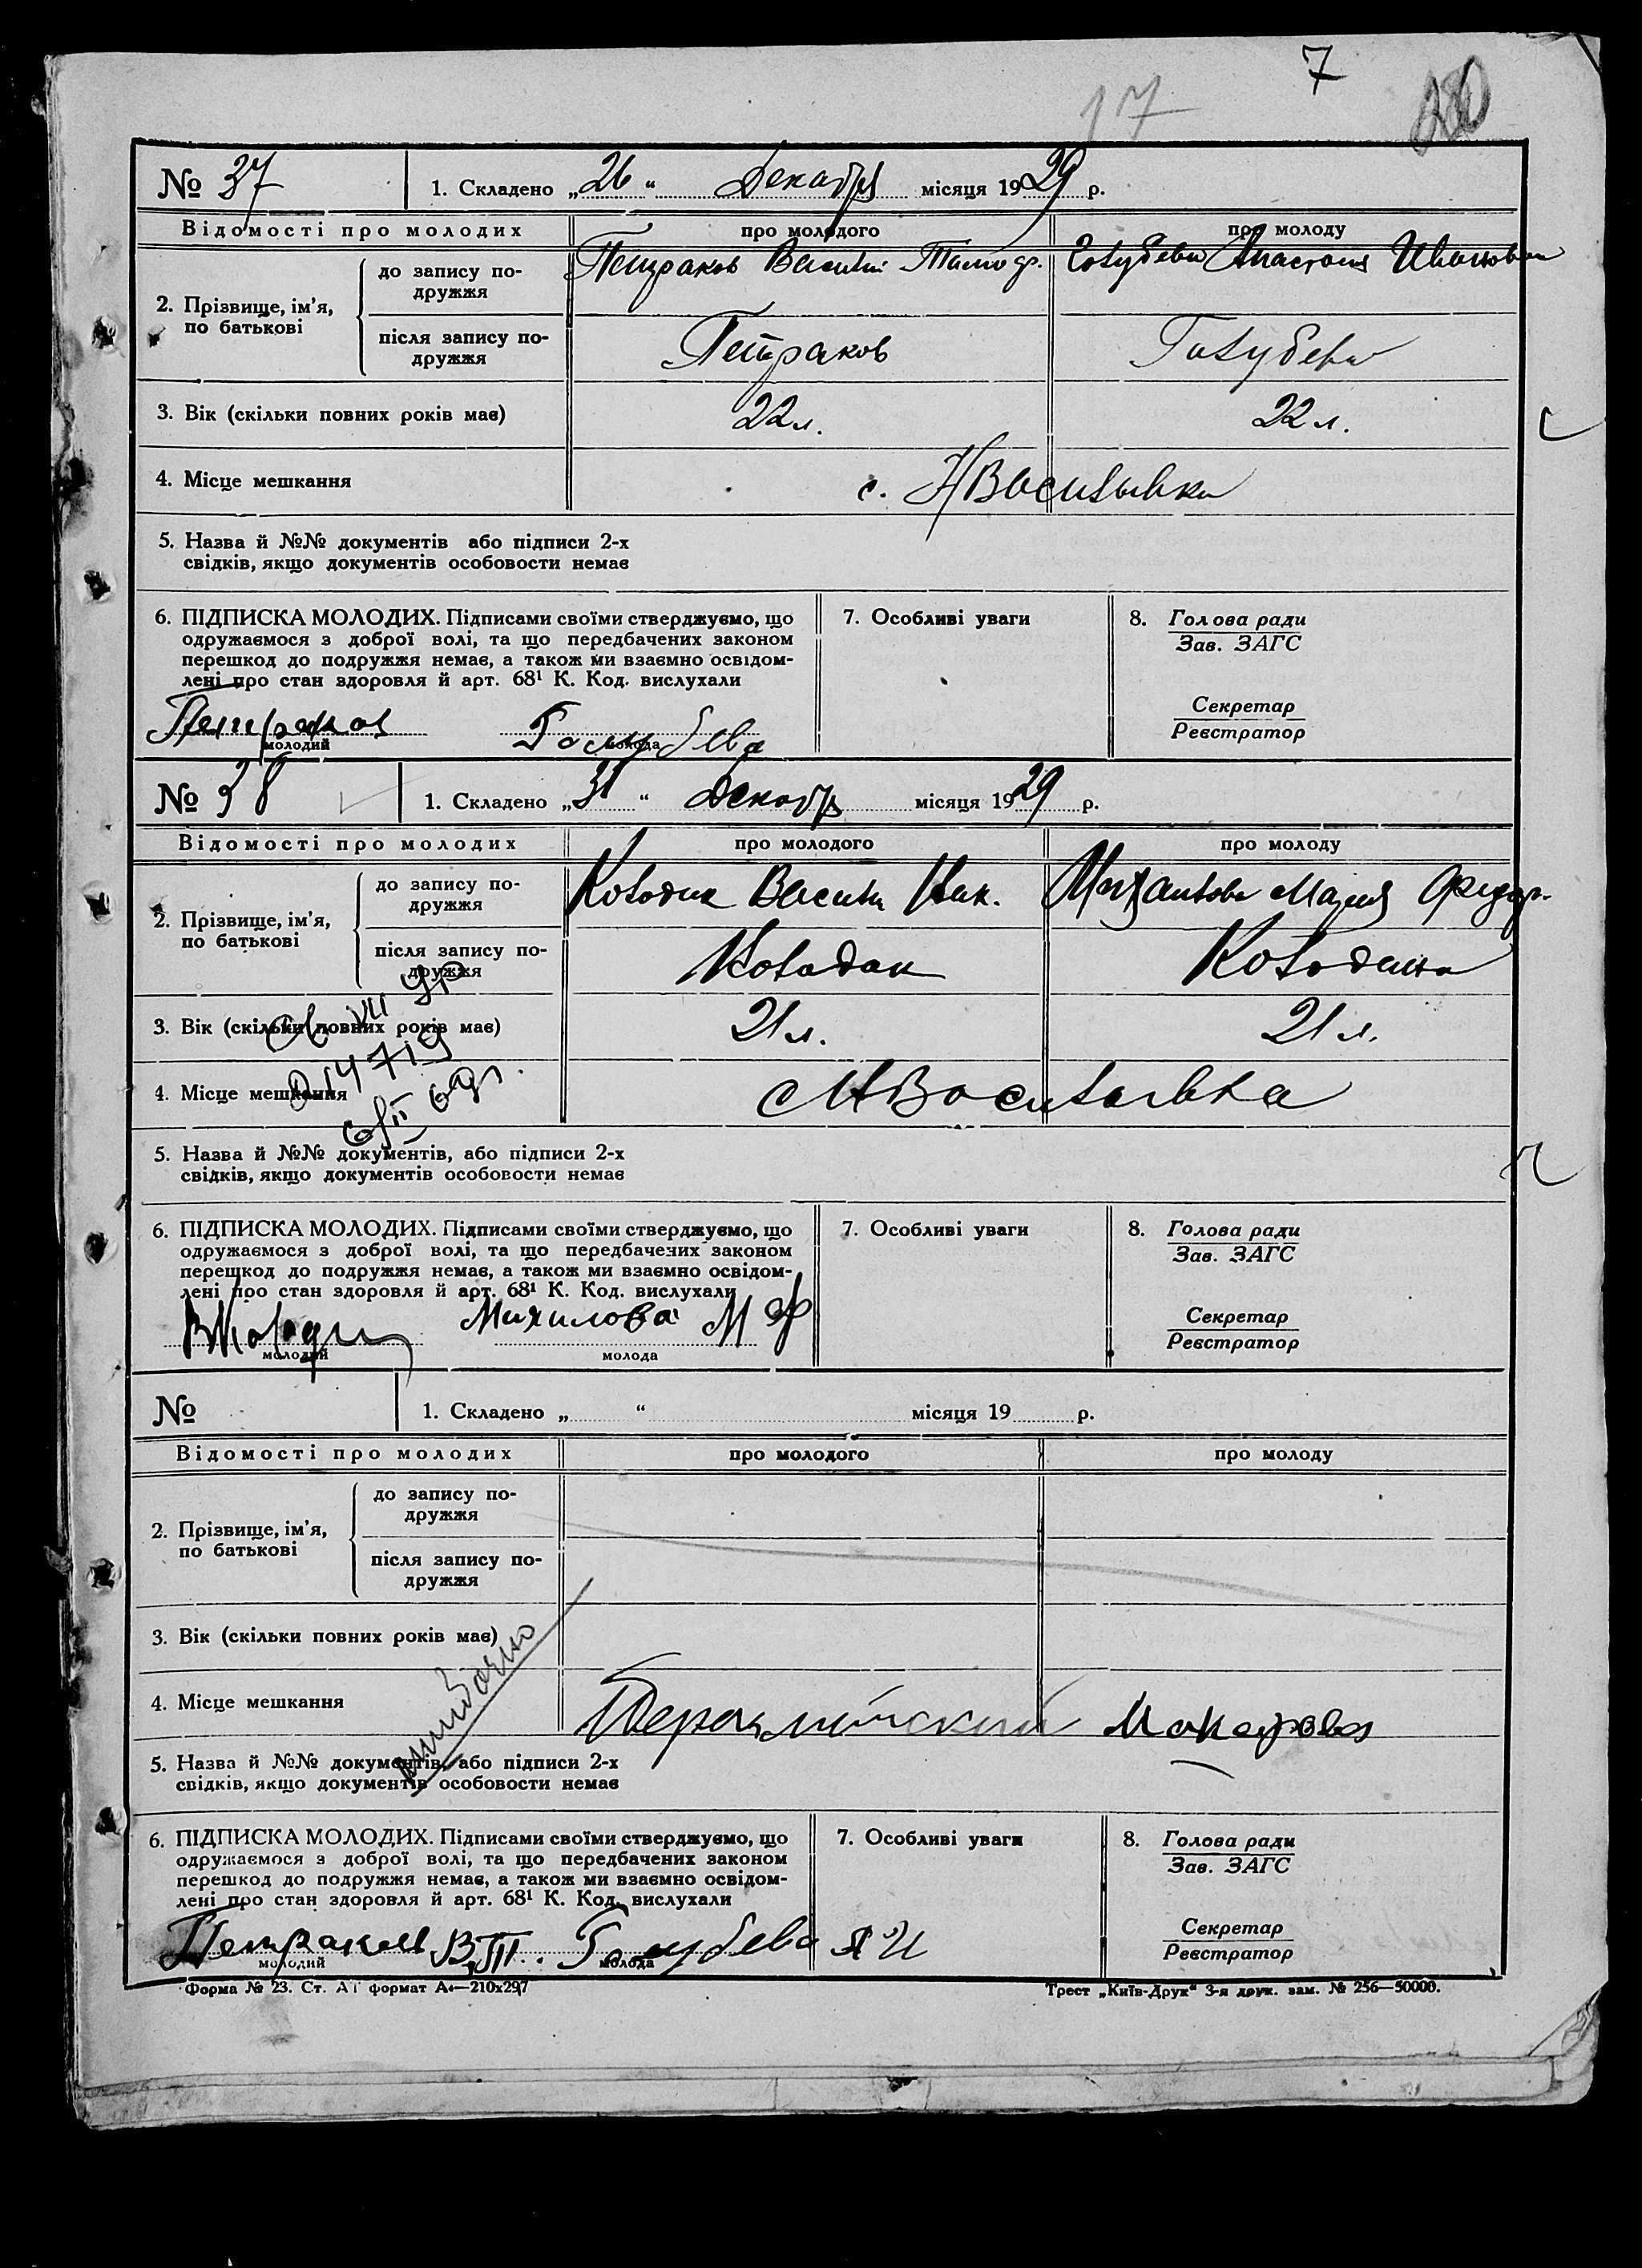 7
17
№ 37 1. Складено „26“ Декабря місяця 1929 р.
Відомості про молодих про молодого про молоду
2. Прізвище, ім’я, по батькові
до запису подружжя Петраков Василий Голубева Анастасия Ивановна
після запису подружжя Петраков Голубева
3. Вік (скільки повних років має) 22 л. 22 л.
4. Місце мешкання с. НВасильевка
5. Назва й №№ документів або підписи 2-х
свідків, якщо документів особовости немає
6. ПІДПИСКА МОЛОДИХ. Підписами своїми стверджуємо, що
одружаємося з доброї волі, та що передбачених законом
перешкод до подружжя немає, а також ми взаємно освідом-
лені про стан здоровля й арт. 68¹ К. Код. вислухали
7. Особливі уваги
8. Голова ради
Зав. ЗАГС
Секретар
Реєстратор
Петраков Голубева
молодий молода
№ 38 1. Складено „31“ Декабр місяця 1929 р.
Відомості про молодих про молодого про молоду
2. Прізвище, ім’я, по батькові
до запису подружжя Колодин Василий Ник. Мария Федор.
після запису подружжя Колодин Колодина
3. Вік (скільки повних років має) 21 л. 21 л.
4. Місце мешкання НВасильевка
5. Назва й №№ документів, або підписи 2-х
свідків, якщо документів особовости немає
6. ПІДПИСКА МОЛОДИХ. Підписами своїми стверджуємо, що
одружаємося з доброї волі, та що передбачених законом
перешкод до подружжя немає, а також ми взаємно освідом-
лені про стан здоровля й арт. 68¹ К. Код. вислухали
7. Особливі уваги
8. Голова ради
Зав. ЗАГС
Секретар
Реєстратор
Михилова М Ф
молодий молода
№ 1. Складено „ “ місяця 19 р.
Відомості про молодих про молодого про молоду
2. Прізвище, ім’я, по батькові
до запису подружжя
після запису подружжя
3. Вік (скільки повних років має)
4. Місце мешкання
ошибочно
5. Назва й №№ документів, або підписи 2-х
свідків, якщо документів особовости немає
6. ПІДПИСКА МОЛОДИХ. Підписами своїми стверджуємо, що
одружаємося з доброї волі, та що передбачених законом
перешкод до подружжя немає, а також ми взаємно освідом-
лені про стан здоровля й арт. 68¹ К. Код. вислухали
7. Особливі уваги
8. Голова ради
Зав. ЗАГС
Секретар
Реєстратор
Петраков В.Т. Голубева А И
молодий молода
Форма № 23. Ст. АГ формат А4—210х297 Трест „Київ-Друк“ 3-я друк. зам. № 256—50000.